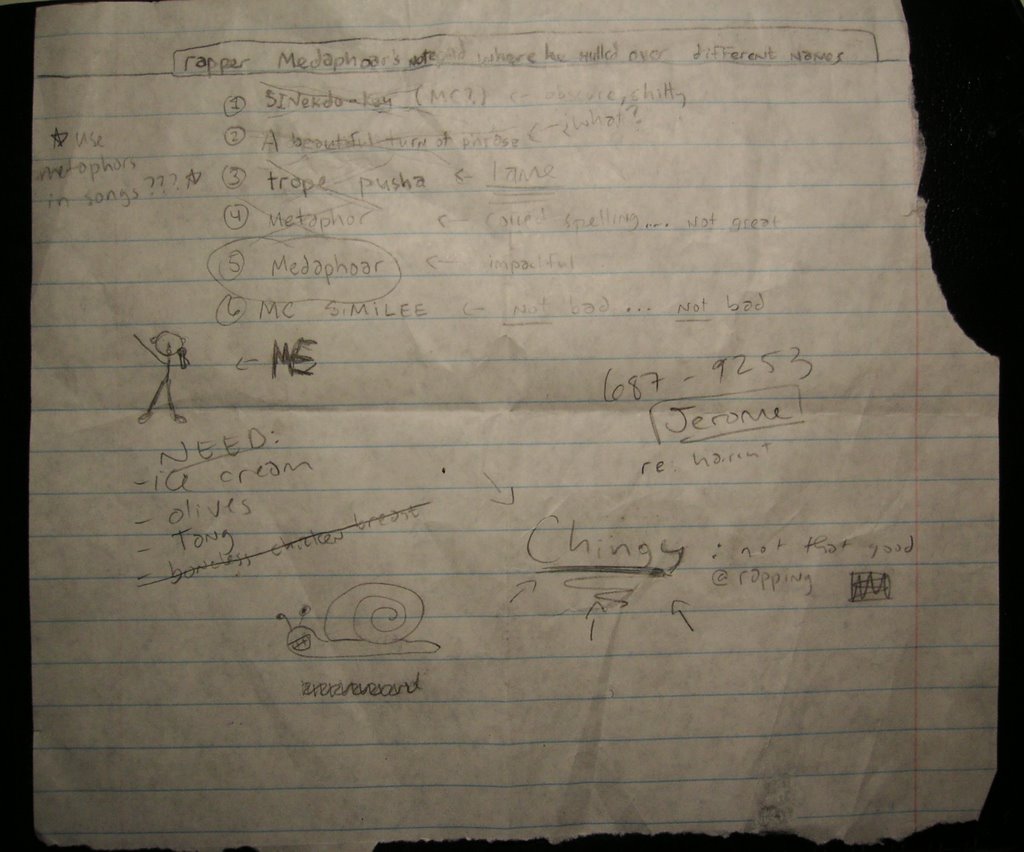 rapper Medaphoar's notepad where he mulled over different names
① SINekdo-key (MC?) <- obscure, shitty
② A beautiful turn of phrase <- ¿what?
☆ use metaphors in songs ??? ☆
③ trope pusha <- lame
④ Metaphor <- correct spelling.... not great
⑤ Medaphoar <- impactful
⑥ MC SiMiLEE <- Not bad ... Not bad
<- ME
687-9253
Jerome
re: haircut
NEED:
- ice cream
- olives
- Tang
- boneless chicken breast
Chingy : not that good
@ rapping